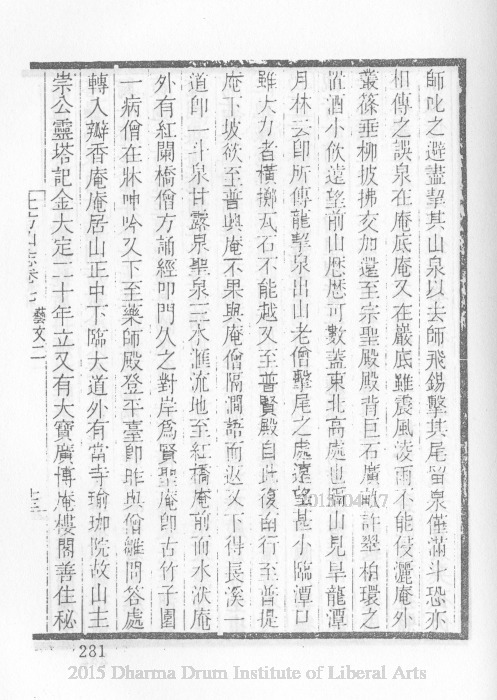 師叱之避盡挈其山泉以去師飛錫擊其尾留泉僅滿斗恐亦
相傳之誤泉在庵底庵又在巖底雖震風淩雨不能侵灑庵外
叢篠垂柳披拂交加還至宗聖殿殿背巨石廣畝許翠柏環之
置酒小飲遠望前山歷歷可數蓋東北高處也隔山見旱龍潭
月林云即所傳龍挈泉出山老僧擊尾之處遠望甚小臨潭口
雖大力者橫擲瓦石不能越又至普賢殿自此復南行至普提
庵下坡欲至普興庵不果與庵僧隔澗語而返又下得長溪一
道即一斗泉甘露泉聖泉三水滙流地至紅橋庵前而水洑庵
外有紅闌橋僧方誦經叩門久之對岸爲賢聖庵即古竹子園
一病僧在牀呻吟又下至藥師殿登平臺即昨與僧雛問答處
轉入瓣香庵庵居山正中下臨大道外有當寺瑜珈院故山主
崇公靈塔記金大定二十年立又有大寶廣博庵樓閣善住秘
上方山志卷七 藝文二
十三
2015/04/17
281
2015 Dharma Drum Institute of Liberal Arts